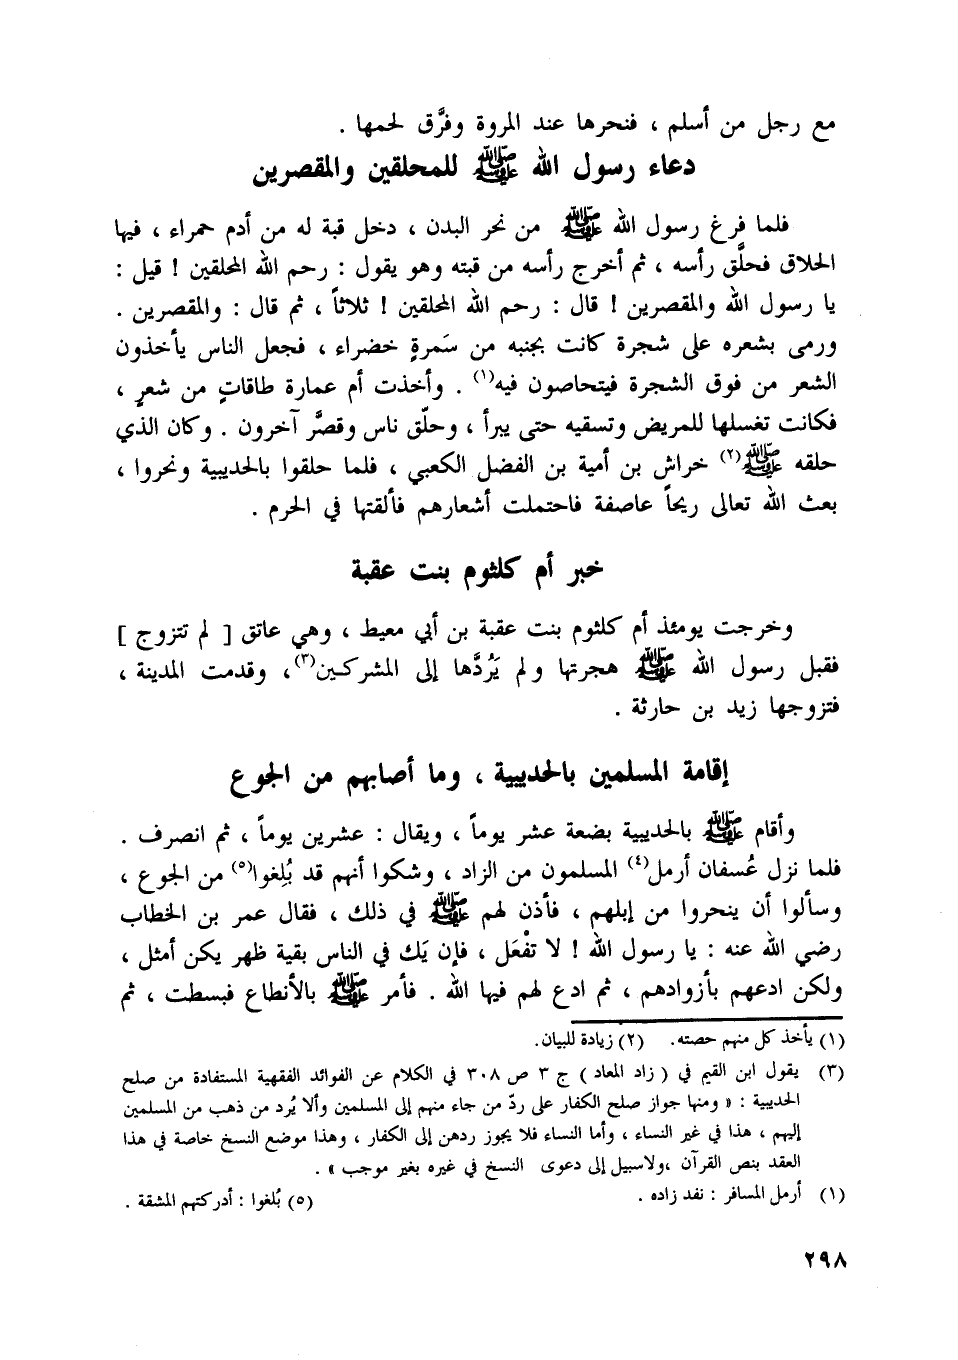 مع رجل من أسلم ، فنحرها عند المروة وفرَّق لحمها .
دعاء رسول الله ﷺ للمحلقين والمقصرين
فلما فرغ رسول الله ﷺ من نحر البدن ، دخل قبة له من أدم حمراء ، فيها
الحلاق فحلَّق رأسه ، ثم أخرج رأسه من قبته وهو يقول : رحم الله المحلقين ! قيل :
يا رسول الله والمقصرين ! قال : رحم الله المحلقين ! ثلاثاً ، ثم قال : والمقصرين .
ورمى بشعره على شجرة كانت بجنبه من سَمرةٍ خضراء ، فجعل الناس يأخذون
الشعر من فوق الشجرة فيتحاصون فيه(١) . وأخذت أم عمارة طاقاتٍ من شعرٍ ،
فكانت تغسلها للمريض وتسقيه حتى يبرأ ، وحلّق ناس وقصَّر آخرون . وكان الذي
حلقه ﷺ(٢) خراش بن أمية بن الفضل الكعبي ، فلما حلقوا بالحديبية ونحروا ،
بعث الله تعالى ريحاً عاصفة فاحتملت أشعارهم فألقتها في الحرم .
خبر أم كلثوم بنت عقبة
وخرجت يومئذ أم كلثوم بنت عقبة بن أبي معيط ، وهي عاتق [ لم تتزوج ]
فقبل رسول الله ﷺ هجرتها ولم يَرُدَّها إلى المشركين(٣)، وقدمت المدينة ،
فتزوجها زيد بن حارثة .
إقامة المسلمين بالحديبية ، وما أصابهم من الجوع
وأقام ﷺ بالحديبية بضعة عشر يوماً ، ويقال : عشرين يوماً ، ثم انصرف .
فلما نزل عُسفان أرمل(٤) المسلمون من الزاد ، وشكوا أنهم قد بُلِغوا(٥) من الجوع ،
وسألوا أن ينحروا من إبلهم ، فأذن لهم ﷺ في ذلك ، فقال عمر بن الخطاب
رضي الله عنه : يا رسول الله ! لا تفْعَل ، فإن يَك في الناس بقية ظهر يكن أمثل ،
ولكن ادعهم بأزوادهم ، ثم ادع لهم فيها الله . فأمر ﷺ بالأنطاع فبسطت ، ثم
(١) يأخذ كل منهم حصته. (٢) زيادة للبيان.
(٣) يقول ابن القيم في ( زاد المعاد ) ج ٣ ص ٣٠٨ في الكلام عن الفوائد الفقهية المستفادة من صلح
الحديبية : « ومنها جواز صلح الكفار على ردّ من جاء منهم إلى المسلمين وألا يُرد من ذهب من المسلمين
إليهم ، هذا في غير النساء ، وأما النساء فلا يجوز ردهن إلى الكفار ، وهذا موضع النسخ خاصة في هذا
العقد بنص القرآن ،ولاسبيل إلى دعوى النسخ في غيره بغير موجب » .
(١) أرمل المسافر : نفد زاده . (٥) بُلغوا : أدركتهم المشقة .
٢٩٨